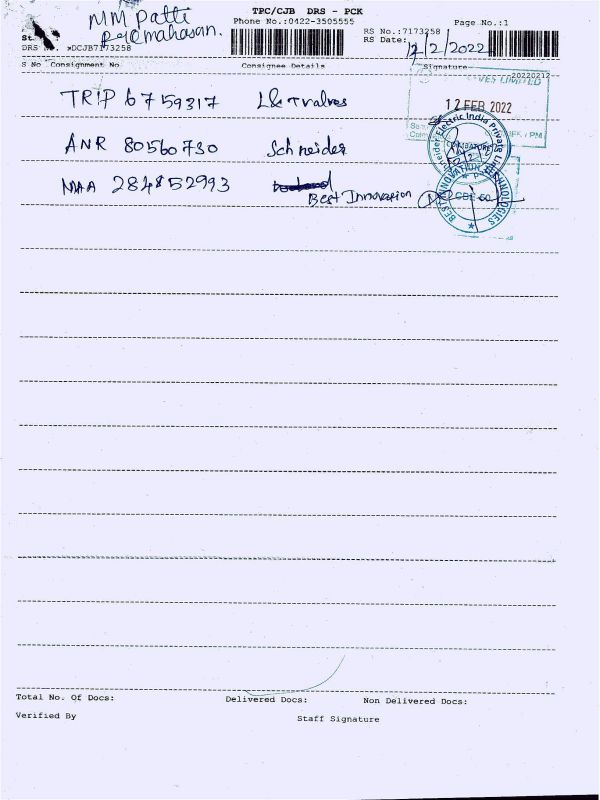 MM Patti
TPC/CJB DRS - PCK
Phone No.:0422-3505555
Page No.:1
RS No.:7173258
RS Date: 12/2/2022
DRS No. *DCJB7173258
S No Consignment No Consignee Details Signature
20220212
VES LIMITED
TRIP 67159317 L&T valves
12 FEB 2022
ANR 80560730 Schneider
Electric India Private Limited
COIMBATORE
MAA 284852993
Best Innovation
BEST INNOVATION TECHNOLOGIES
CBE-60
Total No. Of Docs: Delivered Docs: Non Delivered Docs:
Verified By Staff Signature